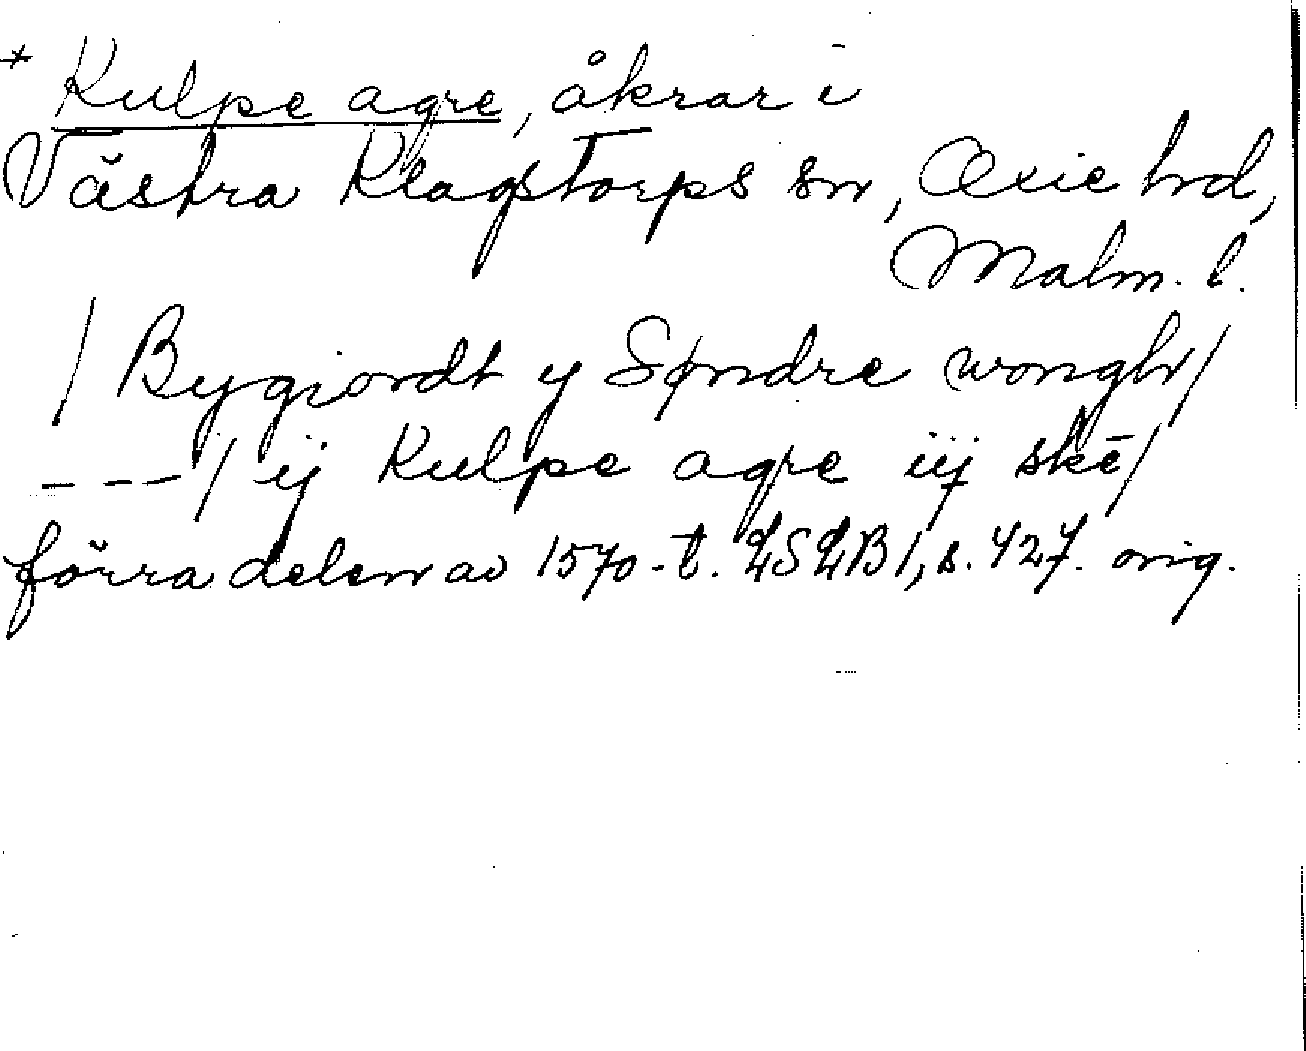 * Kulpe agre, åkrar i
Västra Klagstorps sn, Oxie hd,
Malm. l.
/ Bygiordt y Søndre wongh /
--- / ij Kulpe agre iij skē /
förra delen av 1570-t. LSLB 1, s. 427. orig.